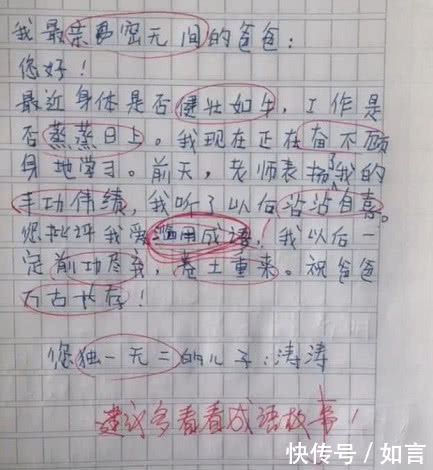 我最亲密无间的爸爸：
您好！
最近身体是否健壮如牛，工作是
否蒸蒸日上。我现在正在奋不顾
身地学习。前天，老师表扬了我的
丰功伟绩，我听了以后沾沾自喜。
您批评我爱滥用成语，我以后一
定前功尽弃，卷土重来。祝爸爸
万古长存！
您独一无二的儿子：涛涛
建议多看看成语故事！
快传号／如言